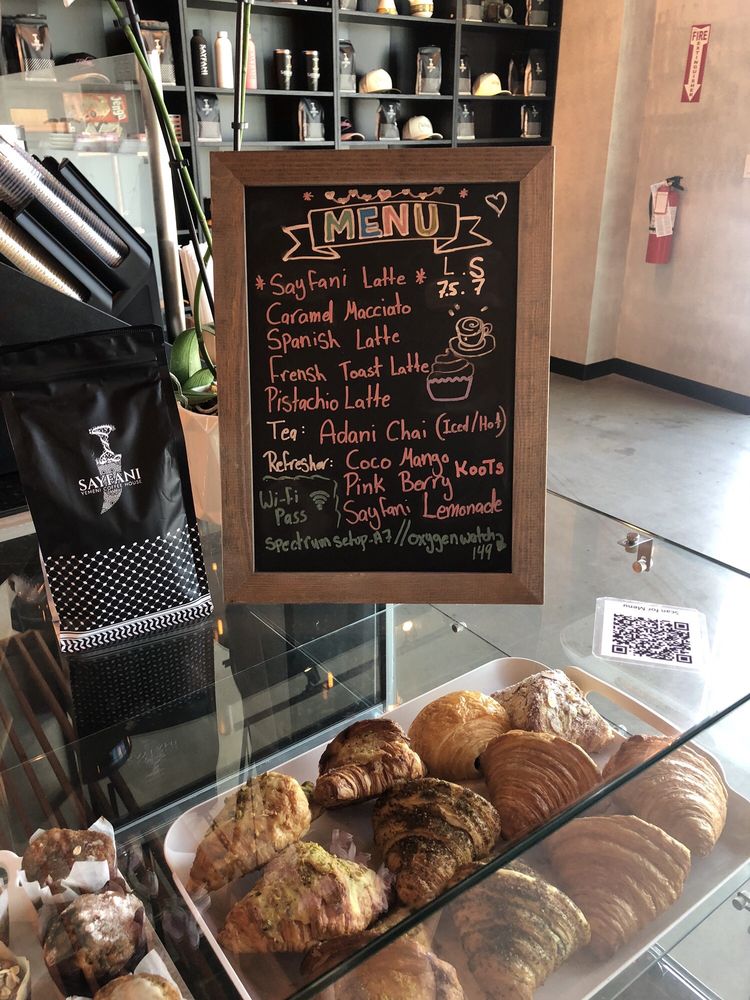 FIRE
EXTINGUISHER
SAYFANI
MENU
L . S
*Sayfani Latte* 7.5. 7
Caramel Macciato
Spanish Latte
Frensh Toast Latte
Pistachio Latte
Tea: Adani Chai (Iced/Hot)
Refresher: Coco Mango
Pink Berry KOOTS
Sayfani Lemonade
Wi-Fi
Pass
spectrumsetup-A7//oxygenwatch
149
SAYFANI
YEMENI COFFEE HOUSE
Scan for Menu